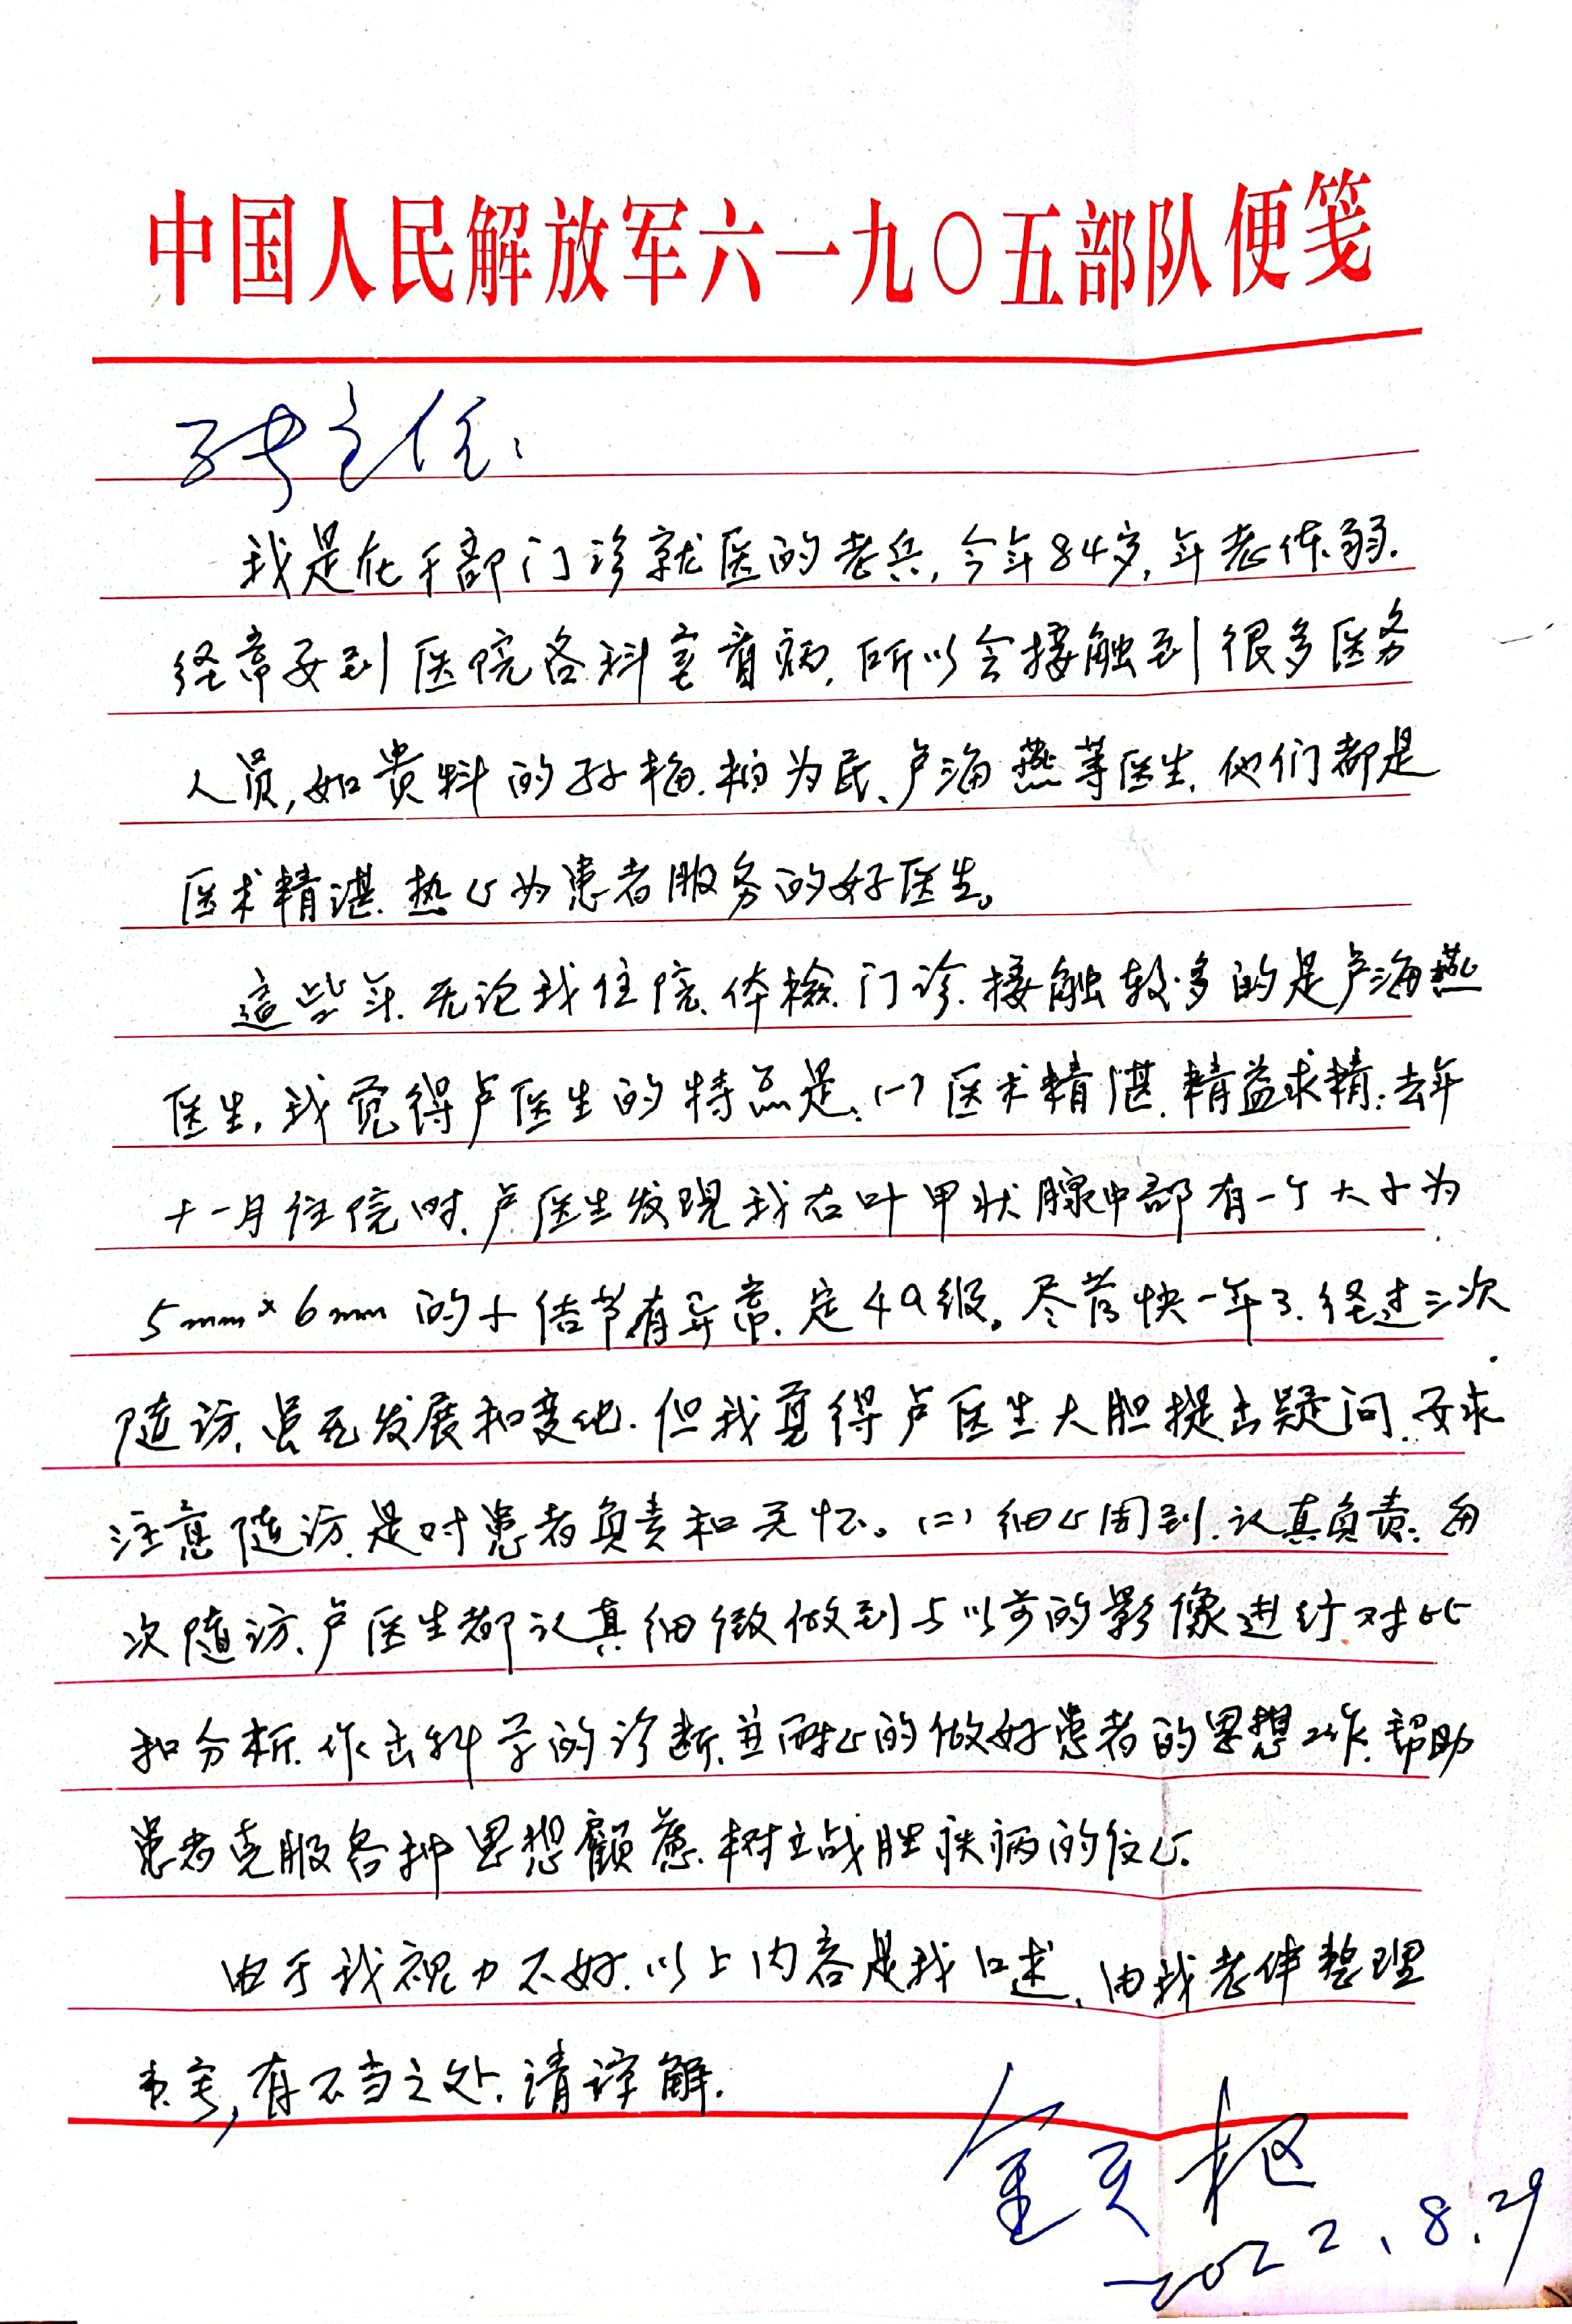 中国人民解放军六一九〇五部队便笺
主任：
我是在干部门诊就医的老兵,今年84岁,年老体弱.
经常要到医院各科室看病,所以会接触到很多医务
人员,如贵科的孙梅.柏为民、卢海燕等医生,他们都是
医术精湛.热心为患者服务的好医生。
這些年.无论我住院、体檢、门诊.接触较多的是卢海燕
医生,我觉得卢医生的特点是:(一)医术精湛.精益求精:去年
十一月住院时.卢医生发现我右叶甲状腺中部有一个大小为
5mm×6mm的小结节有异常.定4a级。尽管快一年了.经过三次
随访.虽无发展和变化.但我觉得卢医生大胆提出疑问.要求
注意随访.是对患者负责和关怀。(二)细心周到.认真负责.每
次随访.卢医生都认真细微做到与以前的影像进行对比
和分析.作出科学的诊断.並耐心的做好患者的思想工作.帮助
患者克服各种思想顧慮.树立战胜疾病的信心.
由于我视力不好.以上内容是我口述,由我老伴整理
有不当之处.请谅解.
2022.8.29